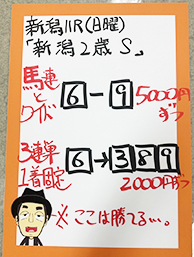 新潟11R(日曜)
「新潟2歳S」
馬連とワイド 6－9 5000円ずつ
3連単1着固定 6→389 2000円ずつ
※ここは勝てるぅ…。